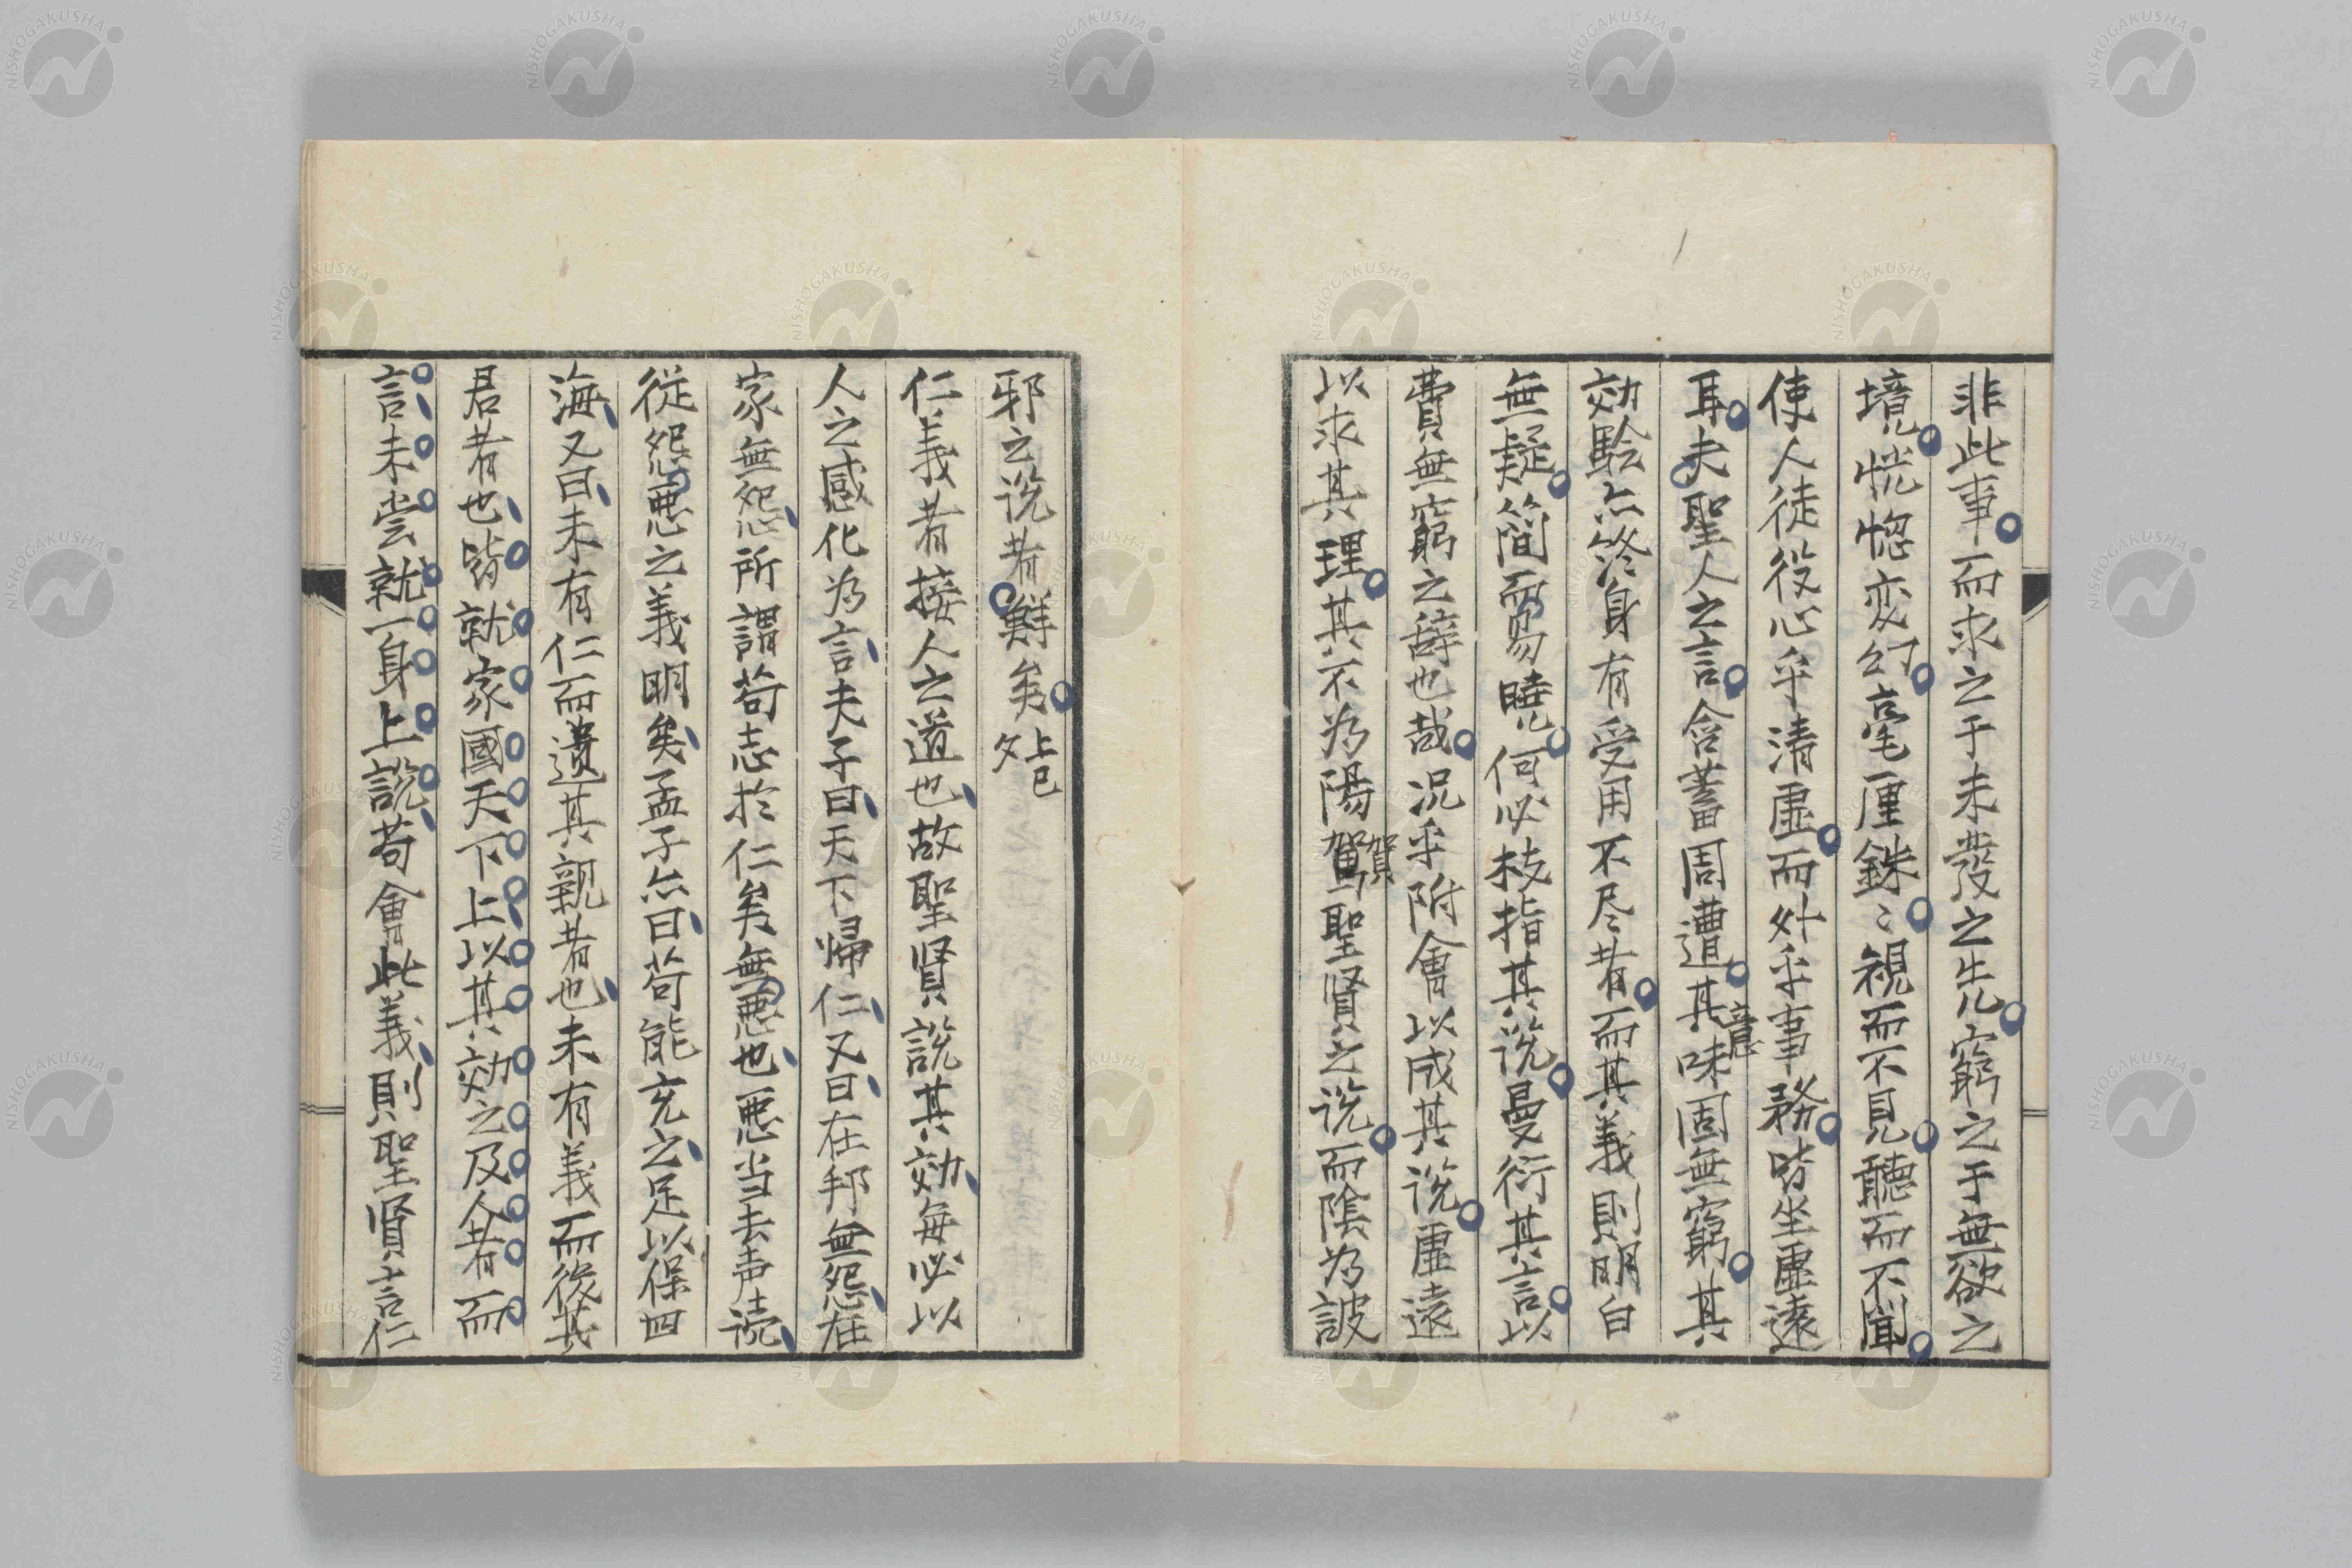 非此事而求之于未發之先窮之于無欲之
境恍惚変幻毫厘銖〻視而不見聽而不聞
使人徒役心乎清虚而外乎事務皆坐虚遠
耳夫聖人之言含蓄周遭其味固無窮其
意
効験亦終身有受用不尽者而其義則明白
無疑簡而易曉何必枝指其説曼衍其言以
費無窮之辞也哉況乎附會以成其説虚遠
以求其理其不為陽駕聖賢之説而陰為詖
賀
邪之説者鮮矣
仁義者接人之道也故聖賢說其効每必以
人之感化为言夫子曰天下帰仁又曰在邦無怨在
家無怨所謂苟志於仁矣無悪也悪当去声読
従怨悪之義明矣孟子亦曰苟能充之足以保四
海又曰未有仁而遺其親者也未有義而後其
君者也皆就家國天下上以其効之及人者而
言未嘗就一身上説苟會此義則聖賢言仁
NISHOGAKUSHA